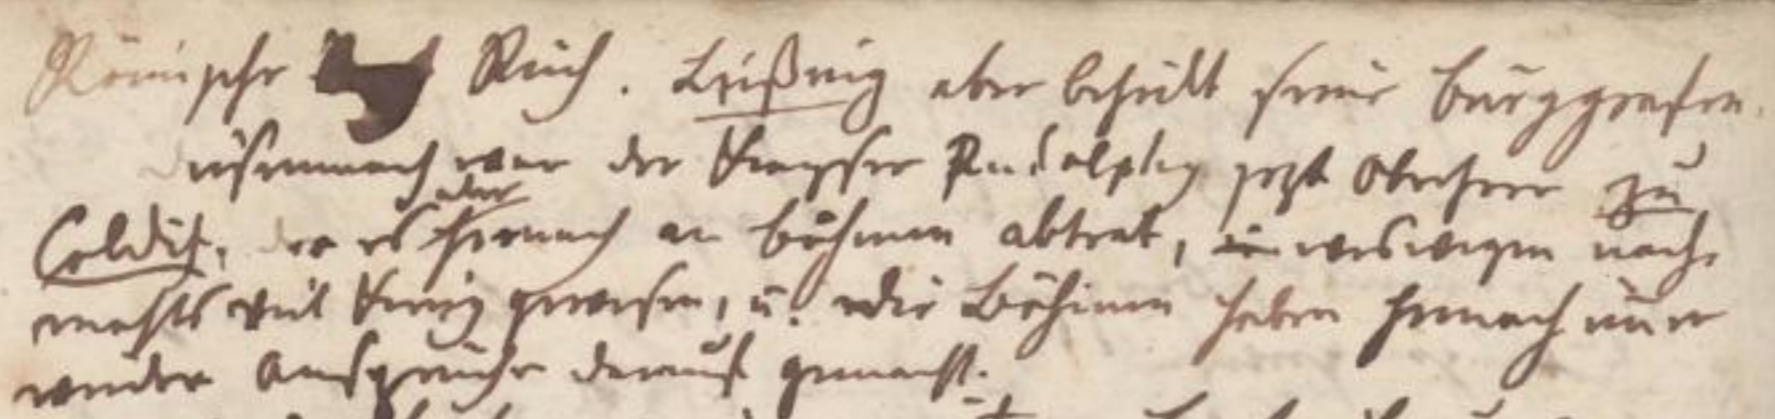 Römische Reich. Leißnig aber behielt seine Burggrafen.
Diesemnach war der Kayser Rudolph jezt Oberherr zu
Colditz, der es aber hernach an Böhmen abtrat, weswegen nach-
mahls viel Krieg gewesen, u. die Böhmen haben hernach immer
wieder Ansprüche darauf gemacht.